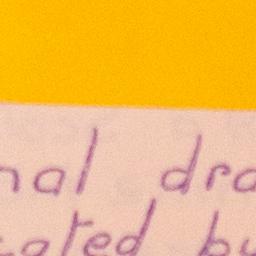 nal dra
cated by